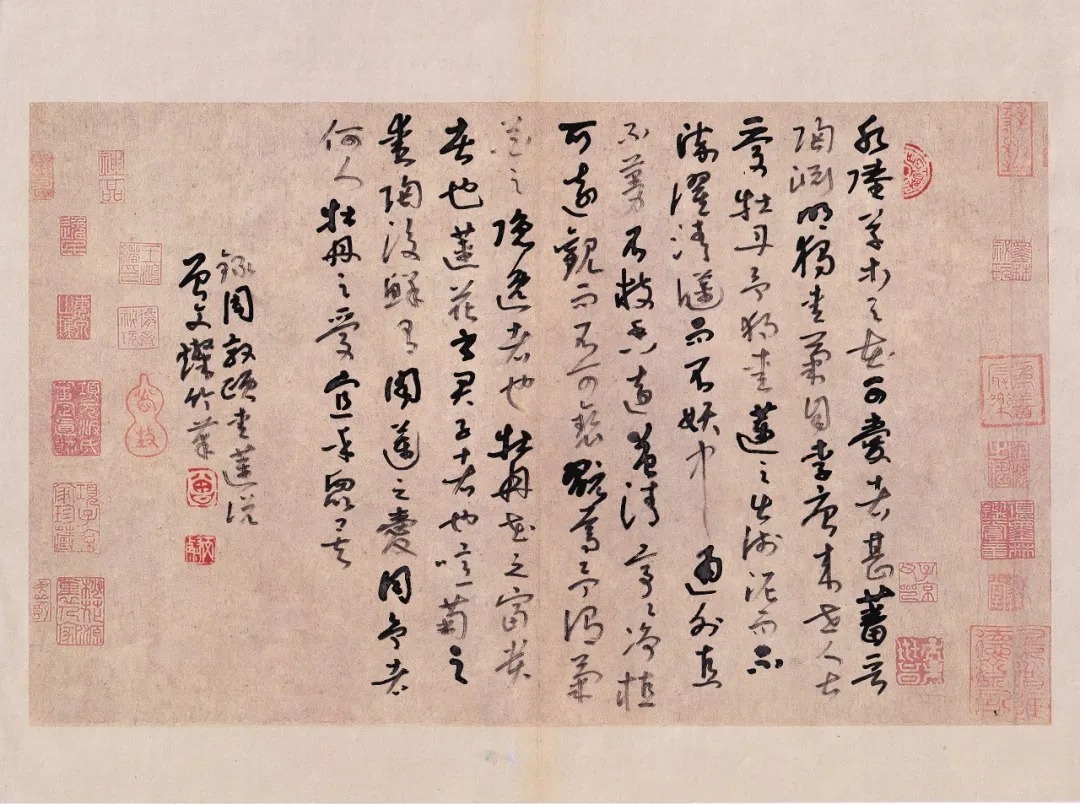 水陸草木之花可愛者甚蕃晉
陶淵明獨愛菊自李唐來世人甚
愛牡丹予獨愛蓮之出淤泥而不
染濯清漣而不妖中通外直
不蔓不枝香遠益清亭亭净植
可遠觀而不可褻翫焉予謂菊
花之隱逸者也牡丹花之富貴
者也蓮花之君子者也噫菊之
愛陶後鮮有聞蓮之愛同予者
何人牡丹之愛宜乎眾矣
錄周敦頤愛蓮說
曾文燦竹筆
神品